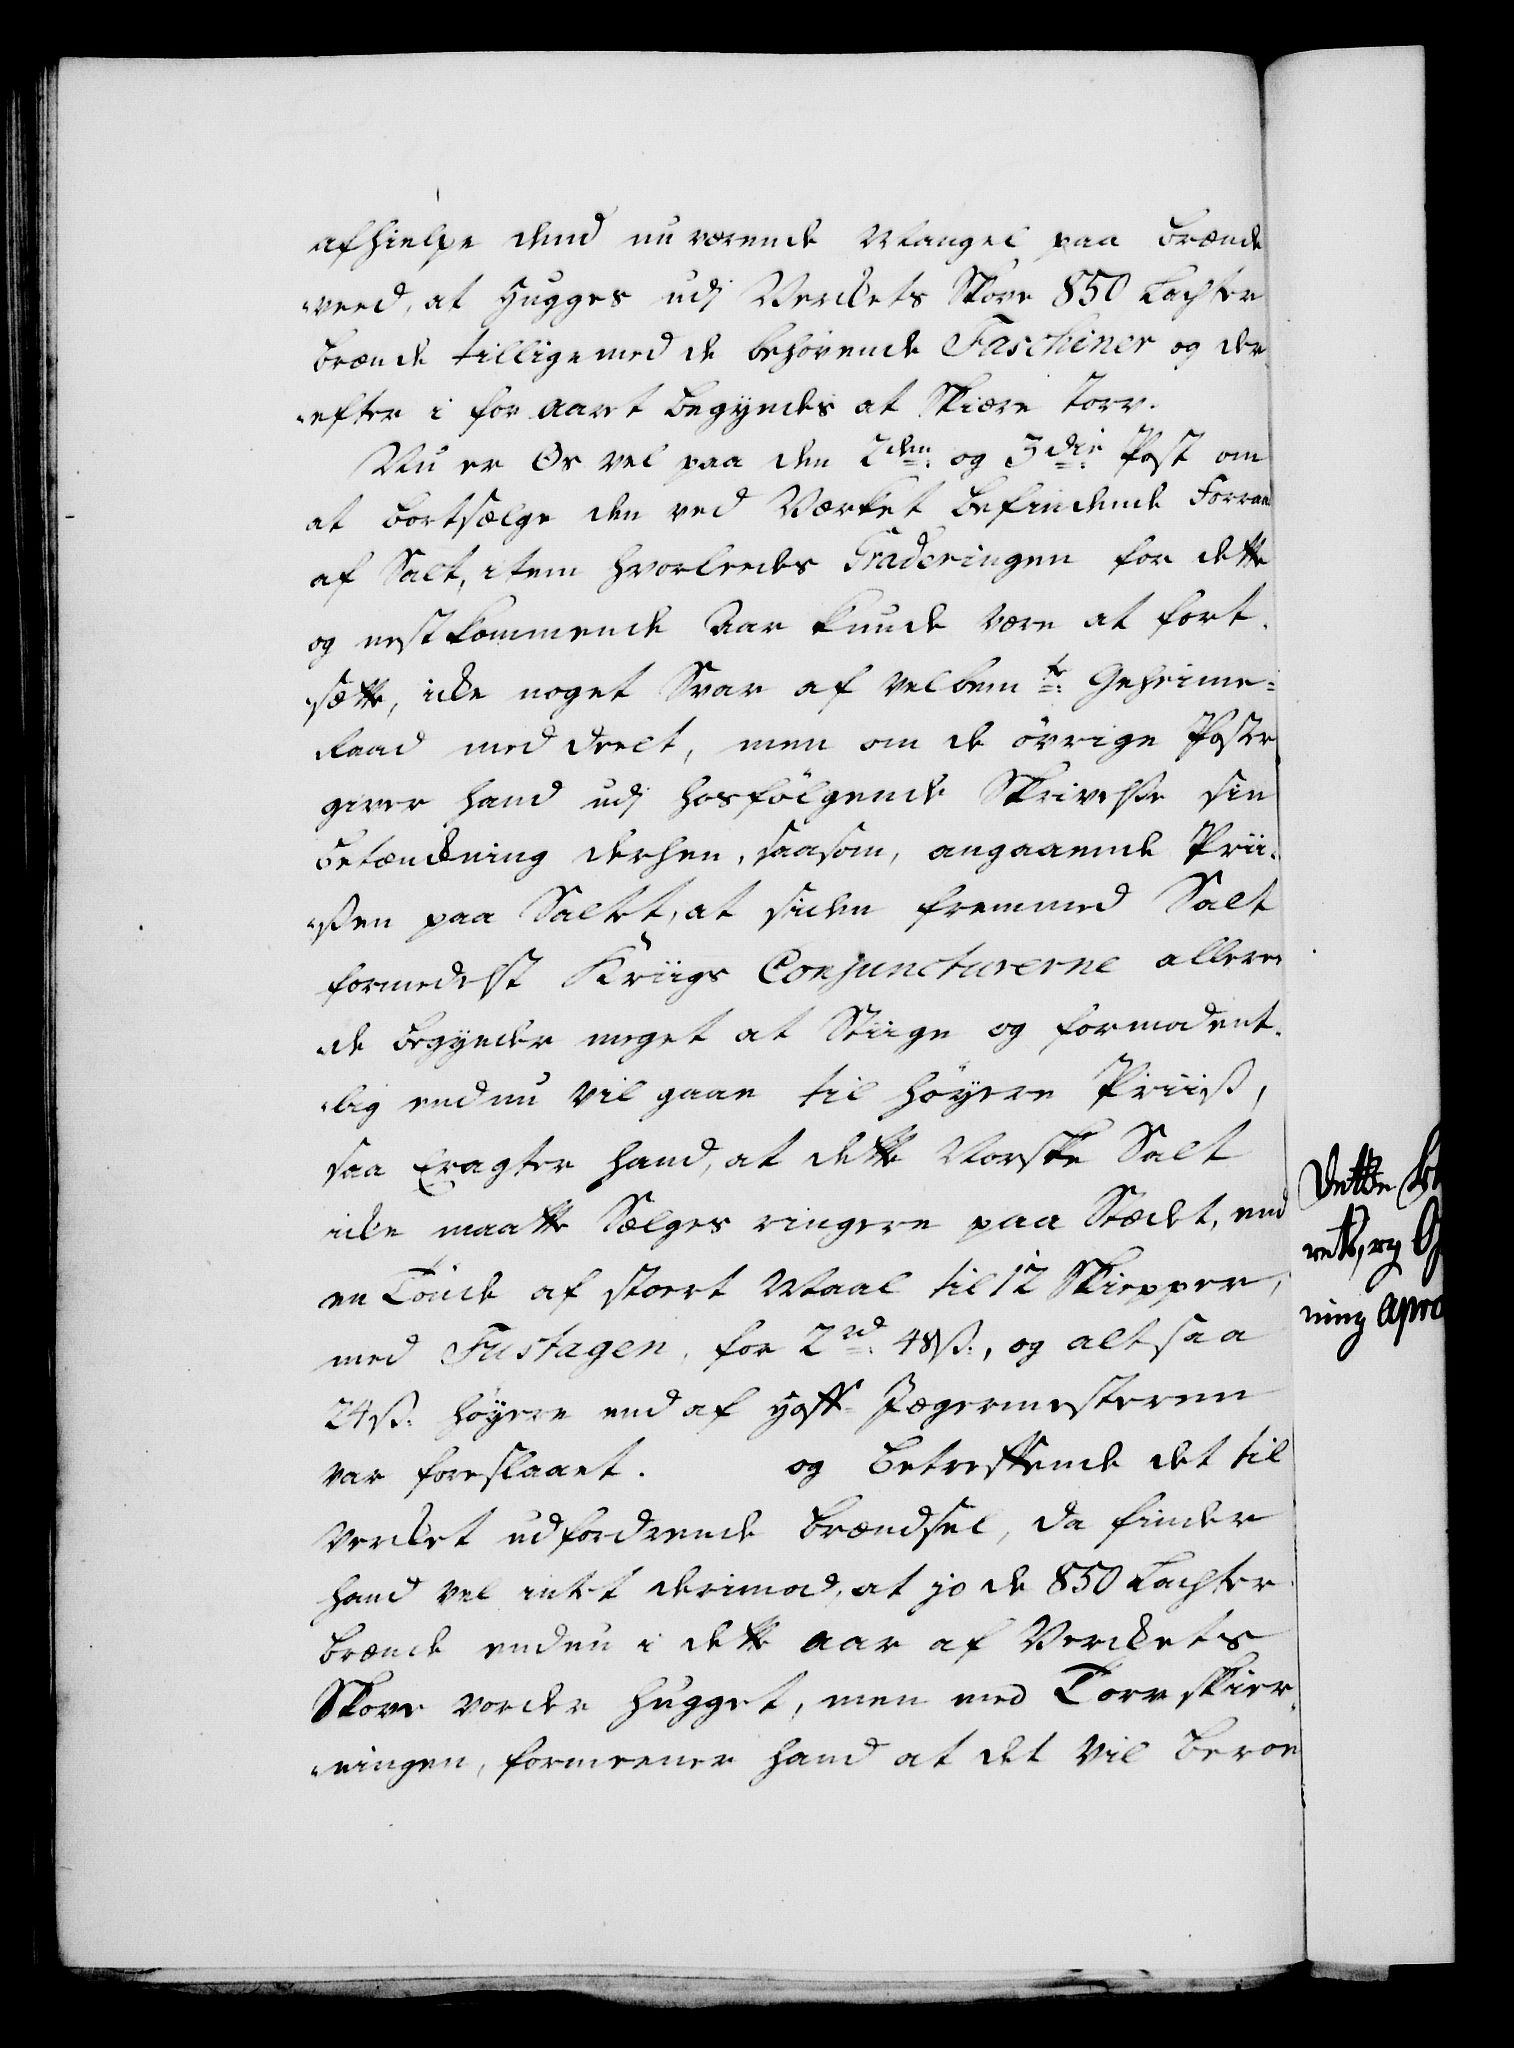 afhielpe dend nu værende Mangel paa Brænde
veed, at Hugges udj Verckets Skove 850 Lachter
Brænde tilligemed de behøvende Faschiner og der
efter i for aaret begyndes at Skiære Torv.
Nu er Os vel paa den 2den og 3die Post om
at bortsælge den ved Værket befindende Forraad
af Salt, item hvorledes Graderingen for dette
og nestkommende Aar kunde være at fort
sætte, icke noget Svar af velbemte Geheime-
Raad meddeelt, men om de øvrige Poster
giver hand udj hosfølgende Skrivelse sin
Betænckning derhen, saasom, angaaende Prii
sen paa Saltet, at siden fremmed Salt
formedelst Kriigs Conjuncturerne allere
de begynder meget at Stiige og formodent
lig endnu vil gaae til høyere Priis,
saa eragter hand, at dette Norske Salt
icke maatte Sælges ringere paa Stædet, end
en Tønde af stoert Maal til 12 Skiepper,
med Fustagen, for 2 rd 48 ß., og altsaa
24 ß. høyere end af Hoff-Jægermesteren
var foreslaaet. og betreffende det til
Vercket udfordrende Brændsel, da finder
hand vel intet derimod, at jo de 850 Lachter
Brænde endnu i dette aar af Verckets
Skove vorder Hugget, men med Torvskier
ningen, formeener hand at det vil beroe
Dette
ning